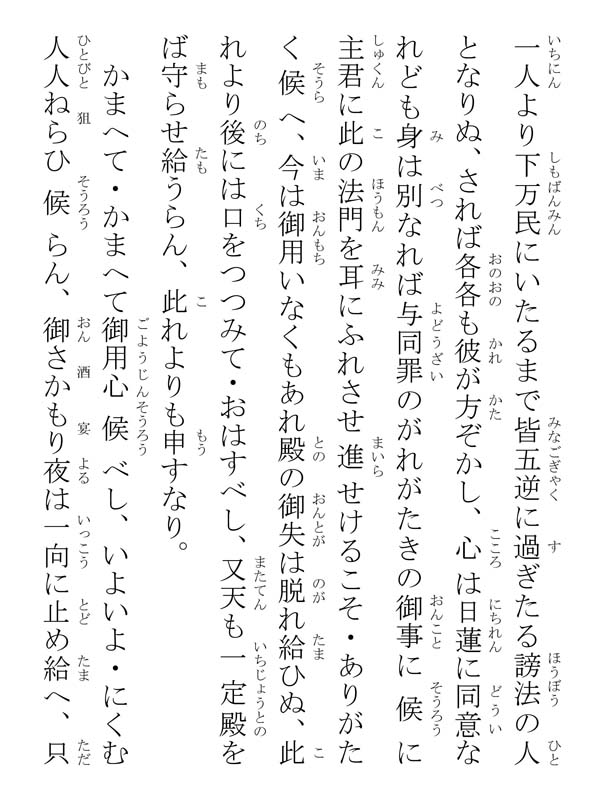 一人より下万民にいたるまで皆五逆に過ぎたる謗法の人
となりぬ、されば各各も彼が方ぞかし、心は日蓮に同意な
れども身は別なれば与同罪のがれがたきの御事に候に
主君に此の法門を耳にふれさせ進せけるこそ・ありがた
く候へ、今は御用いなくもあれ殿の御失は脱れ給ひぬ、此
れより後には口をつつみて・おはすべし、又天も一定殿を
ば守らせ給うらん、此れよりも申すなり。
かまへて・かまへて御用心候べし、いよいよ・にくむ
人人ねらひ候らん、御さかもり夜は一向に止め給へ、只